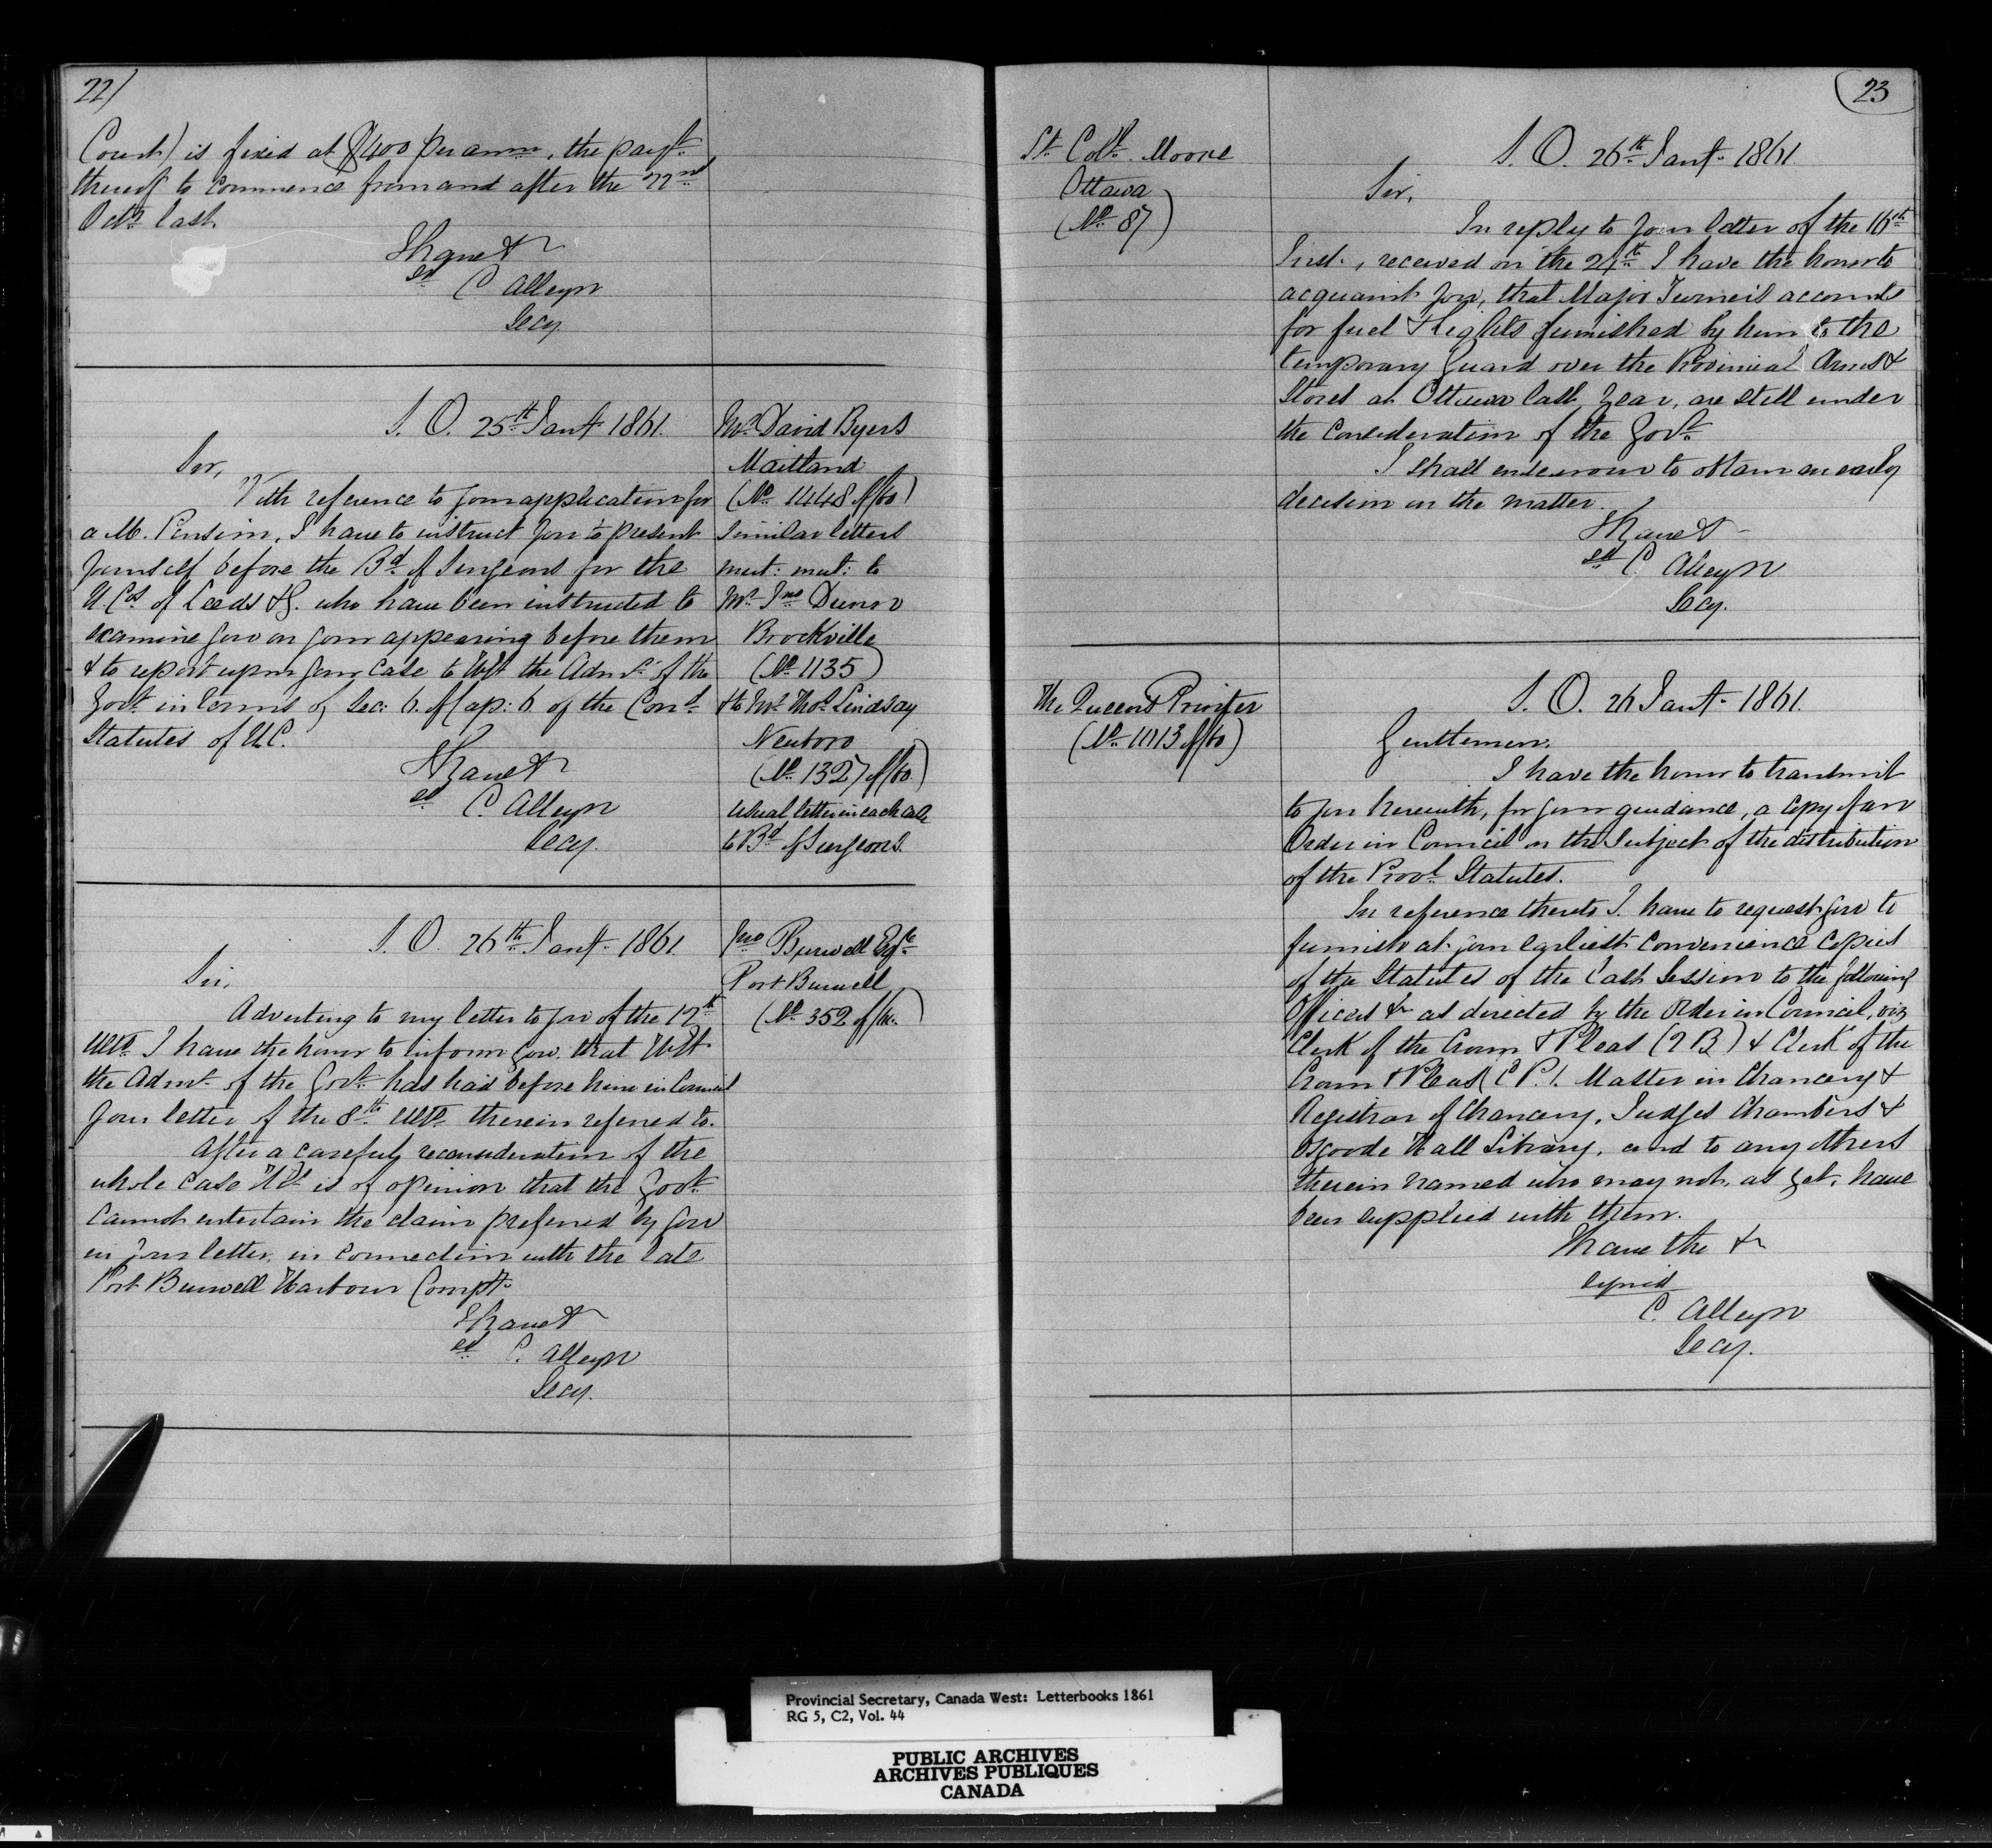 22/
Court) is fixed at $400 per annm, the paymt.
thereof to commence from and after the 22nd
Octr. last.
I have &c
sd C Alleyn
Secy.
S. O. 25th Jany. 1861.
Mr. David Byers
Maitland
(No. 1448 of/60)
Sir,
With reference to your application for
a M. Pension, I have to instruct you to present
yourself before the Bd. of Surgeons for the
U Cos. of Leeds & G. who have been instructed to
examine you on your appearing before them
& to report upon your case to HEt the Admr. of the
Govt. in terms of Sec: 6. of Cap: 6 of the Cond.
Statutes of U.C.
I have &c
sd C. Alleyn
Secy.
Similar letters
mut: mut: to
Mr. Jno
Brockville
(No. 1135)
& to Mr. Thos. Lindsay
Newboro
(No. 1327 of/60.)
usual letter in each case
to Bd. of Surgeons.
S. O. 26th Jany. 1861.
Jno Burwell Esqre.
Port Burwell
(No. 352 of/60.)
Sir,
Adverting to my letter to you of the 12th
ulto. I have the honor to inform you, that HEt
the Admr. of the Govt. has had before him in Council
your letter of the 8th. ulto. therein referred to.
After a careful reconsideration of the
whole case HEt is of opinion that the Govt.
cannot entertain the claim preferred by you
in your letter, in connection with the late
Port Burwell Harbour Compy.
I have &c
sd C. Alleyn
Secy.
23
Lt. Coll. Moore
Ottawa
(No. 87)
S. O. 26th. Jany. 1861.
Sir,
In reply to your letter of the 16th
Inst., received on the 24th. I have the honor to
acquaint you, that Major Turner's accounts
for fuel & lights furnished by him to the
temporary Guard over the Provincial Arms &
Stores at Ottawa last year, are still under
the consideration of the Govt.
I shall endeavour to obtain an early
decision in the matter.
I have &c
sd C. Alleyn
Secy.
The Queens Printer
(No. 1013 of/60)
S. O. 26 Jany. 1861.
Gentlemen,
I have the honor to transmit
to you herewith, for your guidance, a copy of an
Order in Council on the subject of the distribution
of the Provl. Statutes.
In reference thereto I have to request you to
furnish at your earliest convenience copies
of the Statutes of the last Session to the following
Officers &c as directed by the Order in Council, viz
Clerk of the Crown & Pleas (Q B) & Clerk of the
Crown & Pleas (C P). Master in Chancery &
Registrar of Chancery, Judges Chambers &
Osgoode Hall Library, and to any others
therein named who may not, as yet, have
been supplied with them.
I have the &c
signed
C. Alleyn
Secy.
Provincial Secretary, Canada West: Letterbooks 1861
RG 5, C2, Vol. 44
PUBLIC ARCHIVES
ARCHIVES PUBLIQUES
CANADA